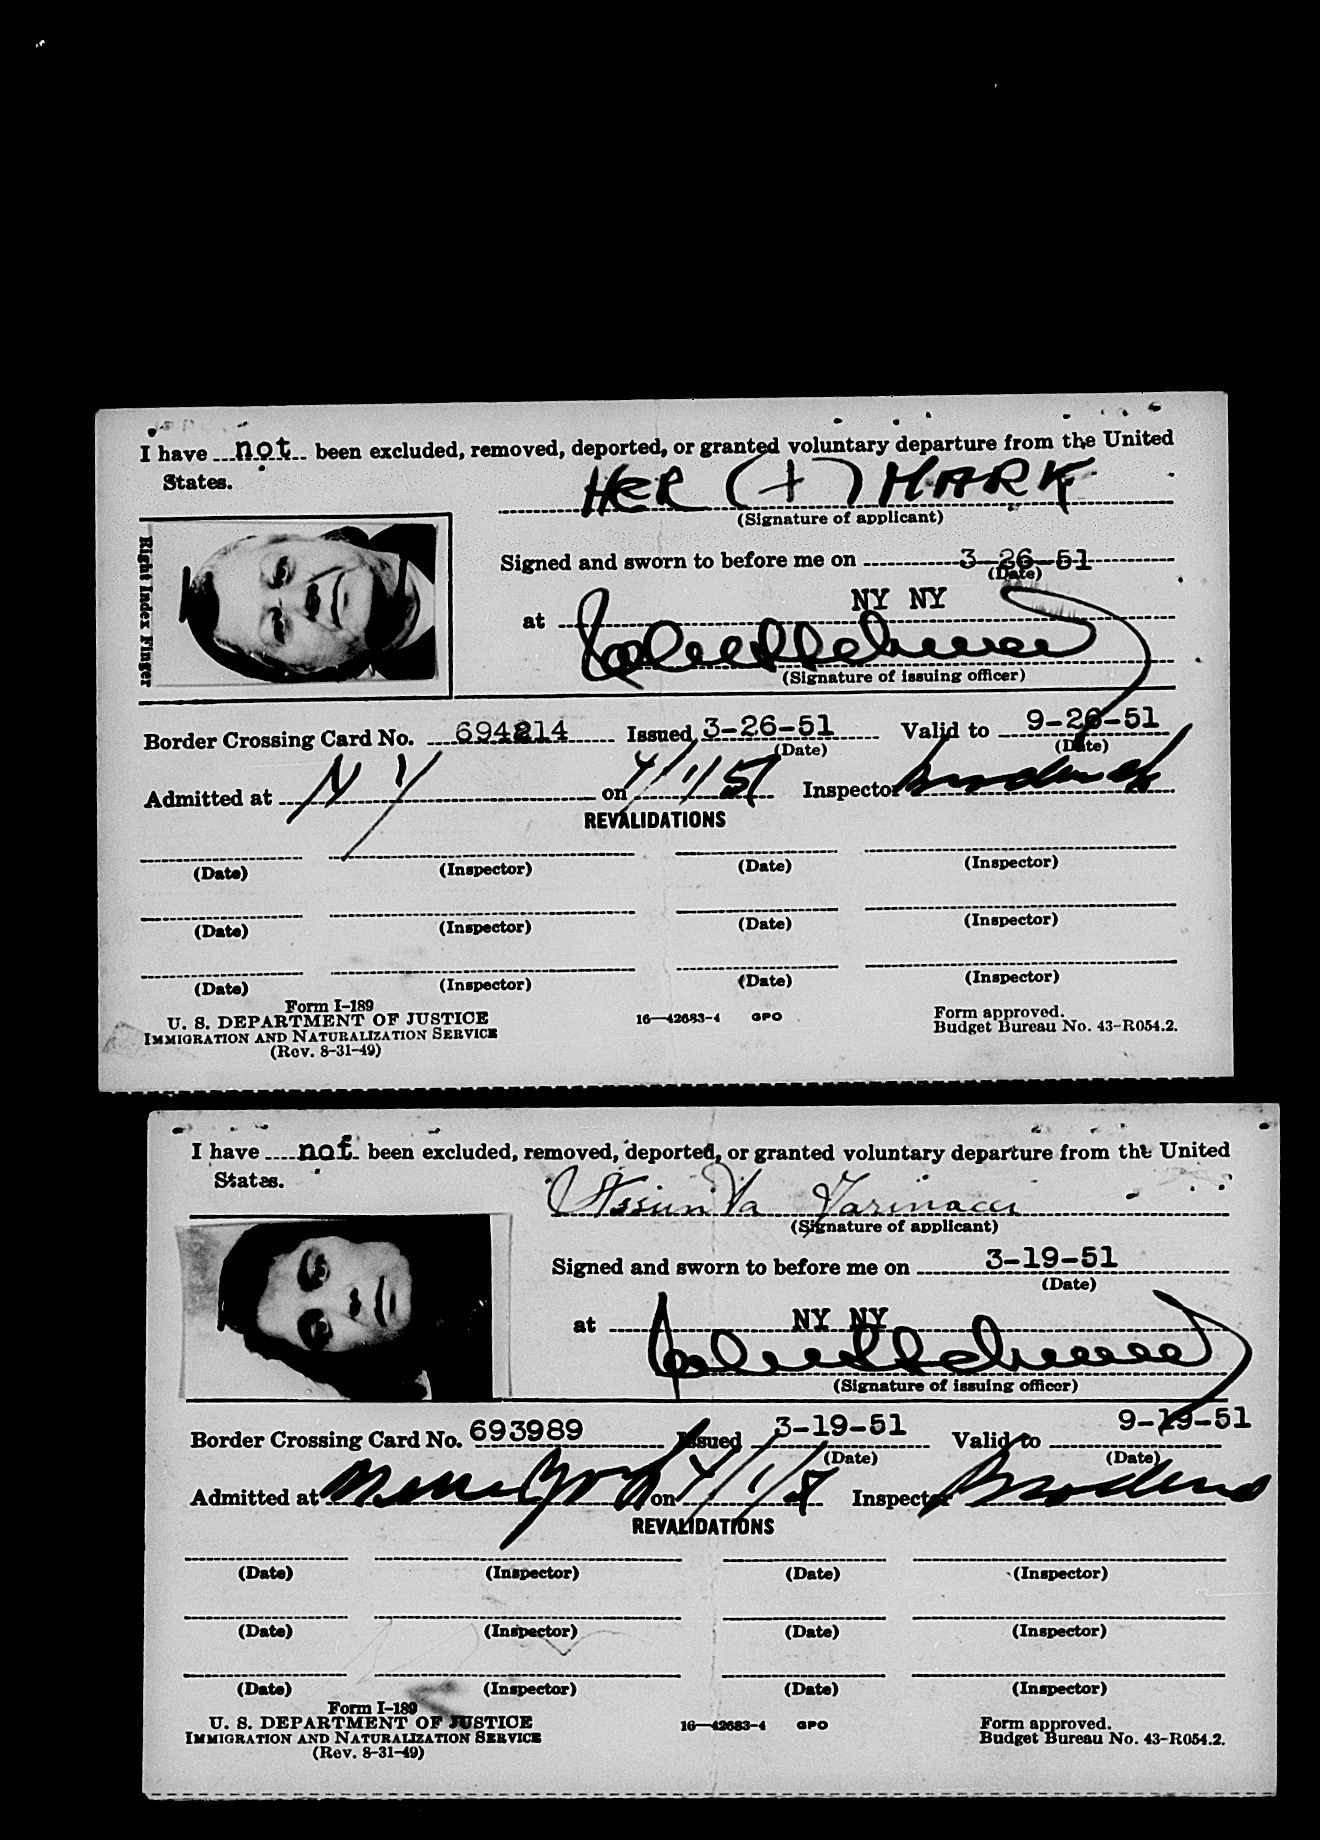 I have not been excluded, removed, deported, or granted voluntary departure from the United
States.
HER (+) MARK
(Signature of applicant)
Right Index Finger
Signed and sworn to before me on 3-26-51
(Date)
at NY NY
(Signature of issuing officer)
Border Crossing Card No. 694214 Issued 3-26-51 Valid to 9-26-51
(Date) (Date)
Admitted at N Y on 4/1/51 Inspector
REVALIDATIONS
(Date) (Inspector) (Date) (Inspector)
(Date) (Inspector) (Date) (Inspector)
(Date) (Inspector) (Date) (Inspector)
Form I-189
U. S. DEPARTMENT OF JUSTICE 16—42683-4 GPO Form approved.
IMMIGRATION AND NATURALIZATION SERVICE Budget Bureau No. 43-R054.2.
(Rev. 8-31-49)
I have not been excluded, removed, deported, or granted voluntary departure from the United
States.
Assunta Farinacci
(Signature of applicant)
Signed and sworn to before me on 3-19-51
(Date)
at NY NY
(Signature of issuing officer)
Border Crossing Card No. 693989 Issued 3-19-51 Valid to 9-19-51
(Date) (Date)
Admitted at New York on 4/1/51 Inspector
REVALIDATIONS
(Date) (Inspector) (Date) (Inspector)
(Date) (Inspector) (Date) (Inspector)
(Date) (Inspector) (Date) (Inspector)
Form I-189
U. S. DEPARTMENT OF JUSTICE 16—42683-4 GPO Form approved.
IMMIGRATION AND NATURALIZATION SERVICE Budget Bureau No. 43-R054.2.
(Rev. 8-31-49)